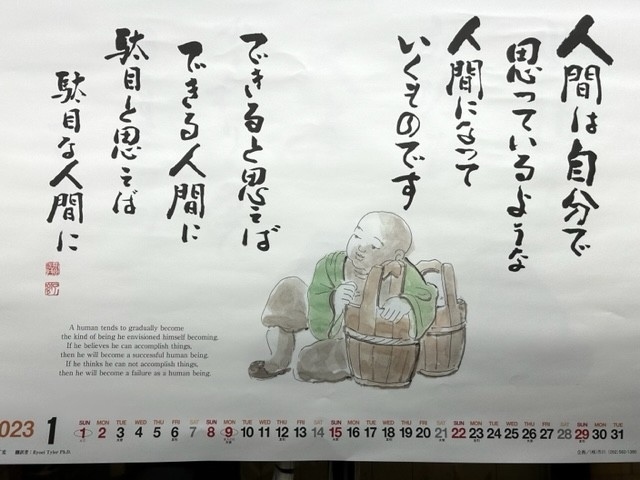 人間は自分で
思っているような
人間になって
いくものです
できると思えば
できる人間に
駄目と思えば
駄目な人間に
A human tends to gradually become
the kind of being he envisioned himself becoming.
If he believes he can accomplish things,
then he will become a successful human being.
If he thinks he can not accomplish things,
then he will become a failure as a human being.
2023 1
SUN MON TUE WED THU FRI SAT SUN MON TUE WED THU FRI SAT SUN MON TUE WED THU FRI SAT SUN MON TUE WED THU FRI SAT SUN MON TUE
1 2 3 4 5 6 7 8 9 10 11 12 13 14 15 16 17 18 19 20 21 22 23 24 25 26 27 28 29 30 31
翻訳者：Royall Tyler Ph.D.